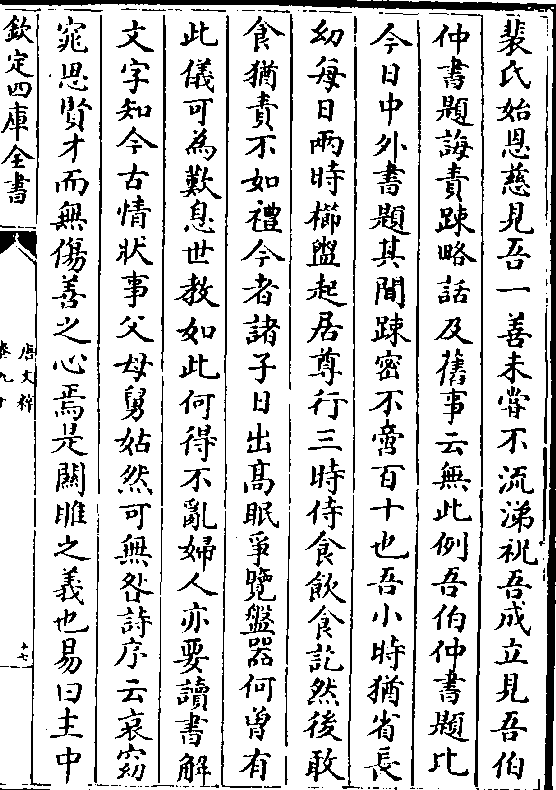 裴氏始恩慈見吾一善未甞不流涕祝吾成立見吾伯
仲書題誨責踈略話及舊事云無此例吾伯仲書題比
今日中外書題其間踈密不啻百十也吾小時猶省長
幼每日兩時櫛盥起居尊行三時侍食飲食訖然後敢
食猶責不如禮今者諸子日出髙眠爭覽盤器何曽有
此儀可為歎息世敎如此何得不亂婦人亦要讀書解
文字知今古情狀事父母舅姑然可無咎詩序云哀窈
窕思賢才而無傷善之心焉是闗雎之義也易曰主中
欽定四庫全書
唐文粹
卷九十
十七